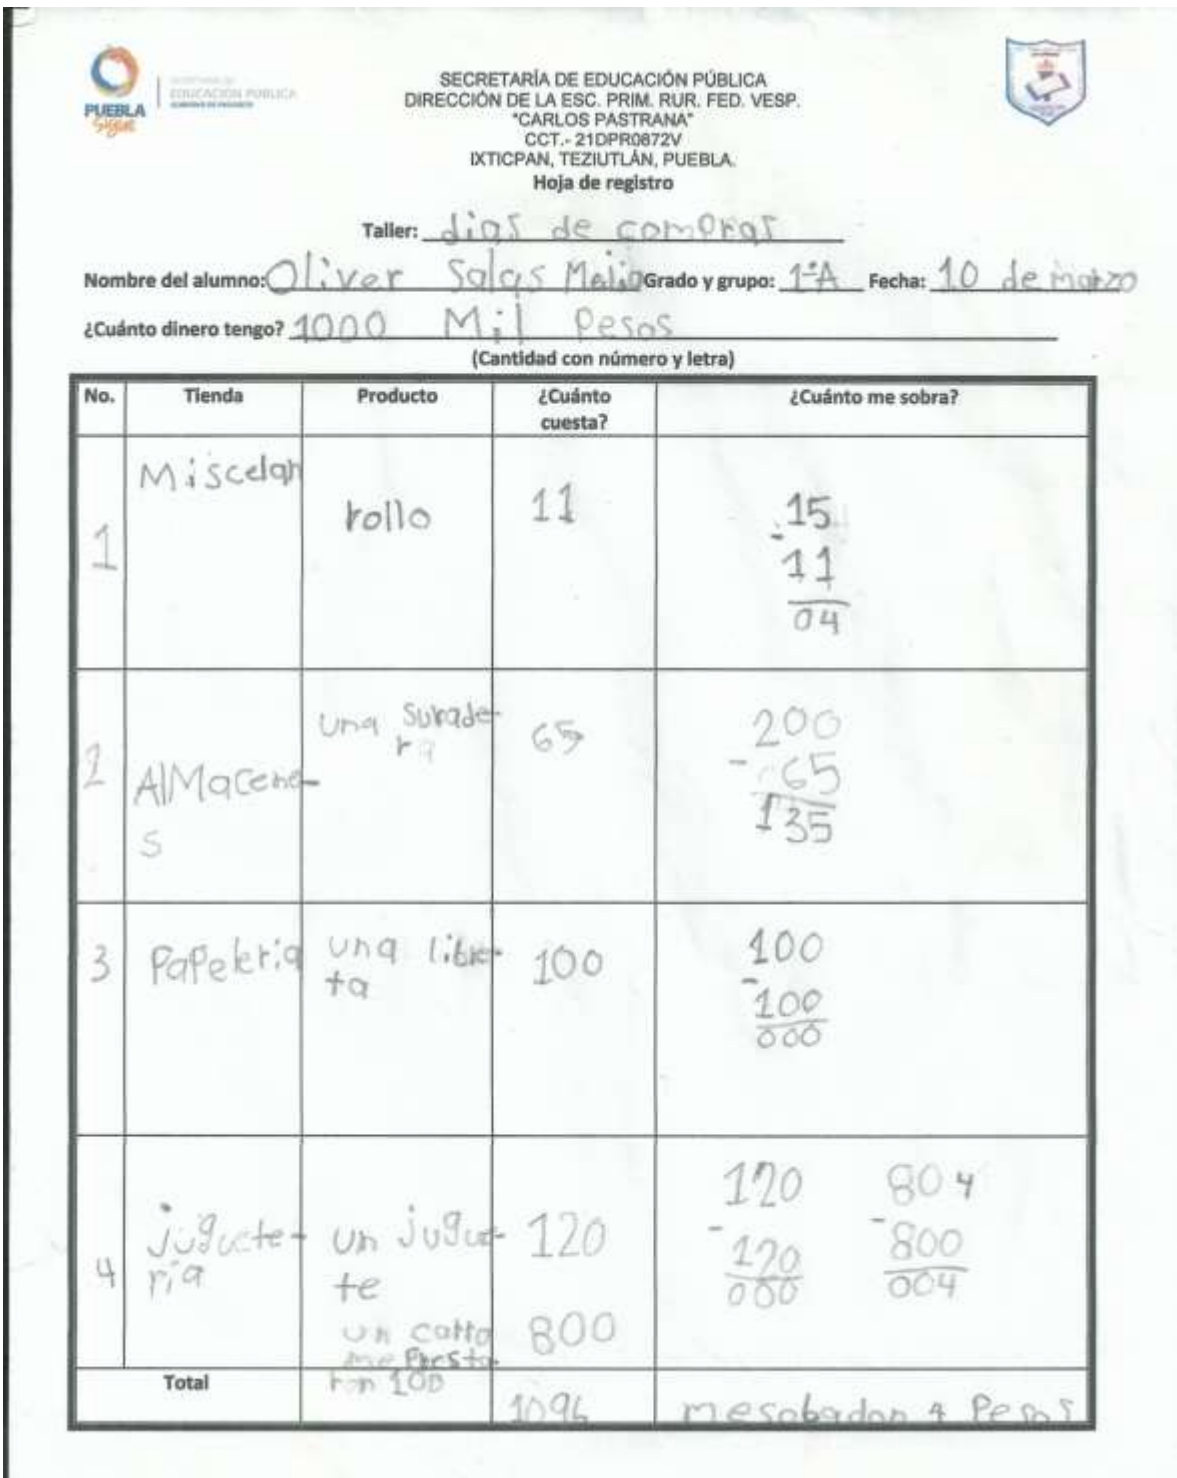 PUEBLA
Sigue
SECRETARÍA DE
EDUCACIÓN PÚBLICA
GOBIERNO DE PROGRESO
SECRETARÍA DE EDUCACIÓN PÚBLICA
DIRECCIÓN DE LA ESC. PRIM. RUR. FED. VESP.
"CARLOS PASTRANA"
CCT.- 21DPR0872V
IXTICPAN, TEZIUTLÁN, PUEBLA.
Hoja de registro
Taller: dias de compras
Nombre del alumno: Oliver Salas Grado y grupo: 1°A Fecha: 10 de marzo
¿Cuánto dinero tengo? 1000 Mil Pesos
(Cantidad con número y letra)
No. Tienda Producto ¿Cuánto cuesta? ¿Cuánto me sobra?
1 Miscelan rollo 11
15
- 11
04
2 AlMacene-
s
una Surade-
ra
65
200
- 65
135
3 PaPeleria una libre-
ta
100
100
- 100
000
4 juguete-
ria
un jugue-
te
120
120
- 120
000
un carro
me Presta-
ron 100
800
804
- 800
004
Total 1096 mesobadon 4 Pesos